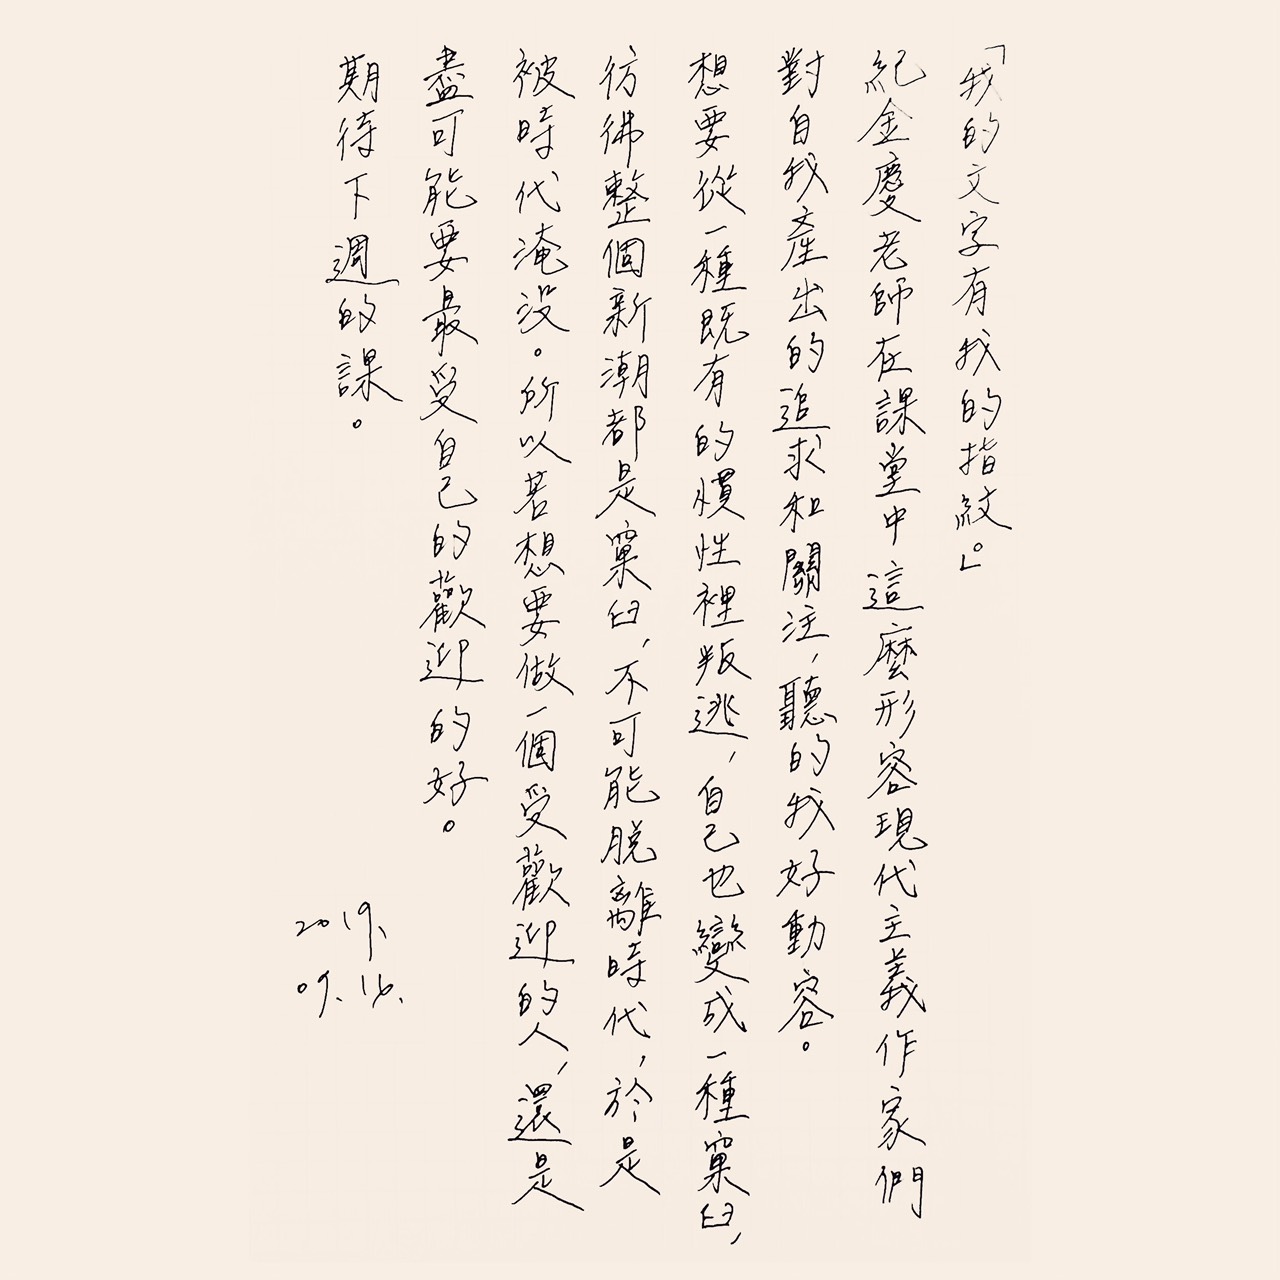 「我的文字有我的指紋。」
紀金慶老師在課堂中這麼形容現代主義作家們
對自我產出的追求和關注，聽的我好動容。
想要從一種既有的慣性裡叛逃，自己也變成一種窠臼，
彷彿整個新潮都是窠臼，不可能脫離時代，於是
被時代淹沒。所以若想要做一個受歡迎的人，還是
盡可能要最受自己的歡迎的好。
期待下週的課。
2019.
09.16.